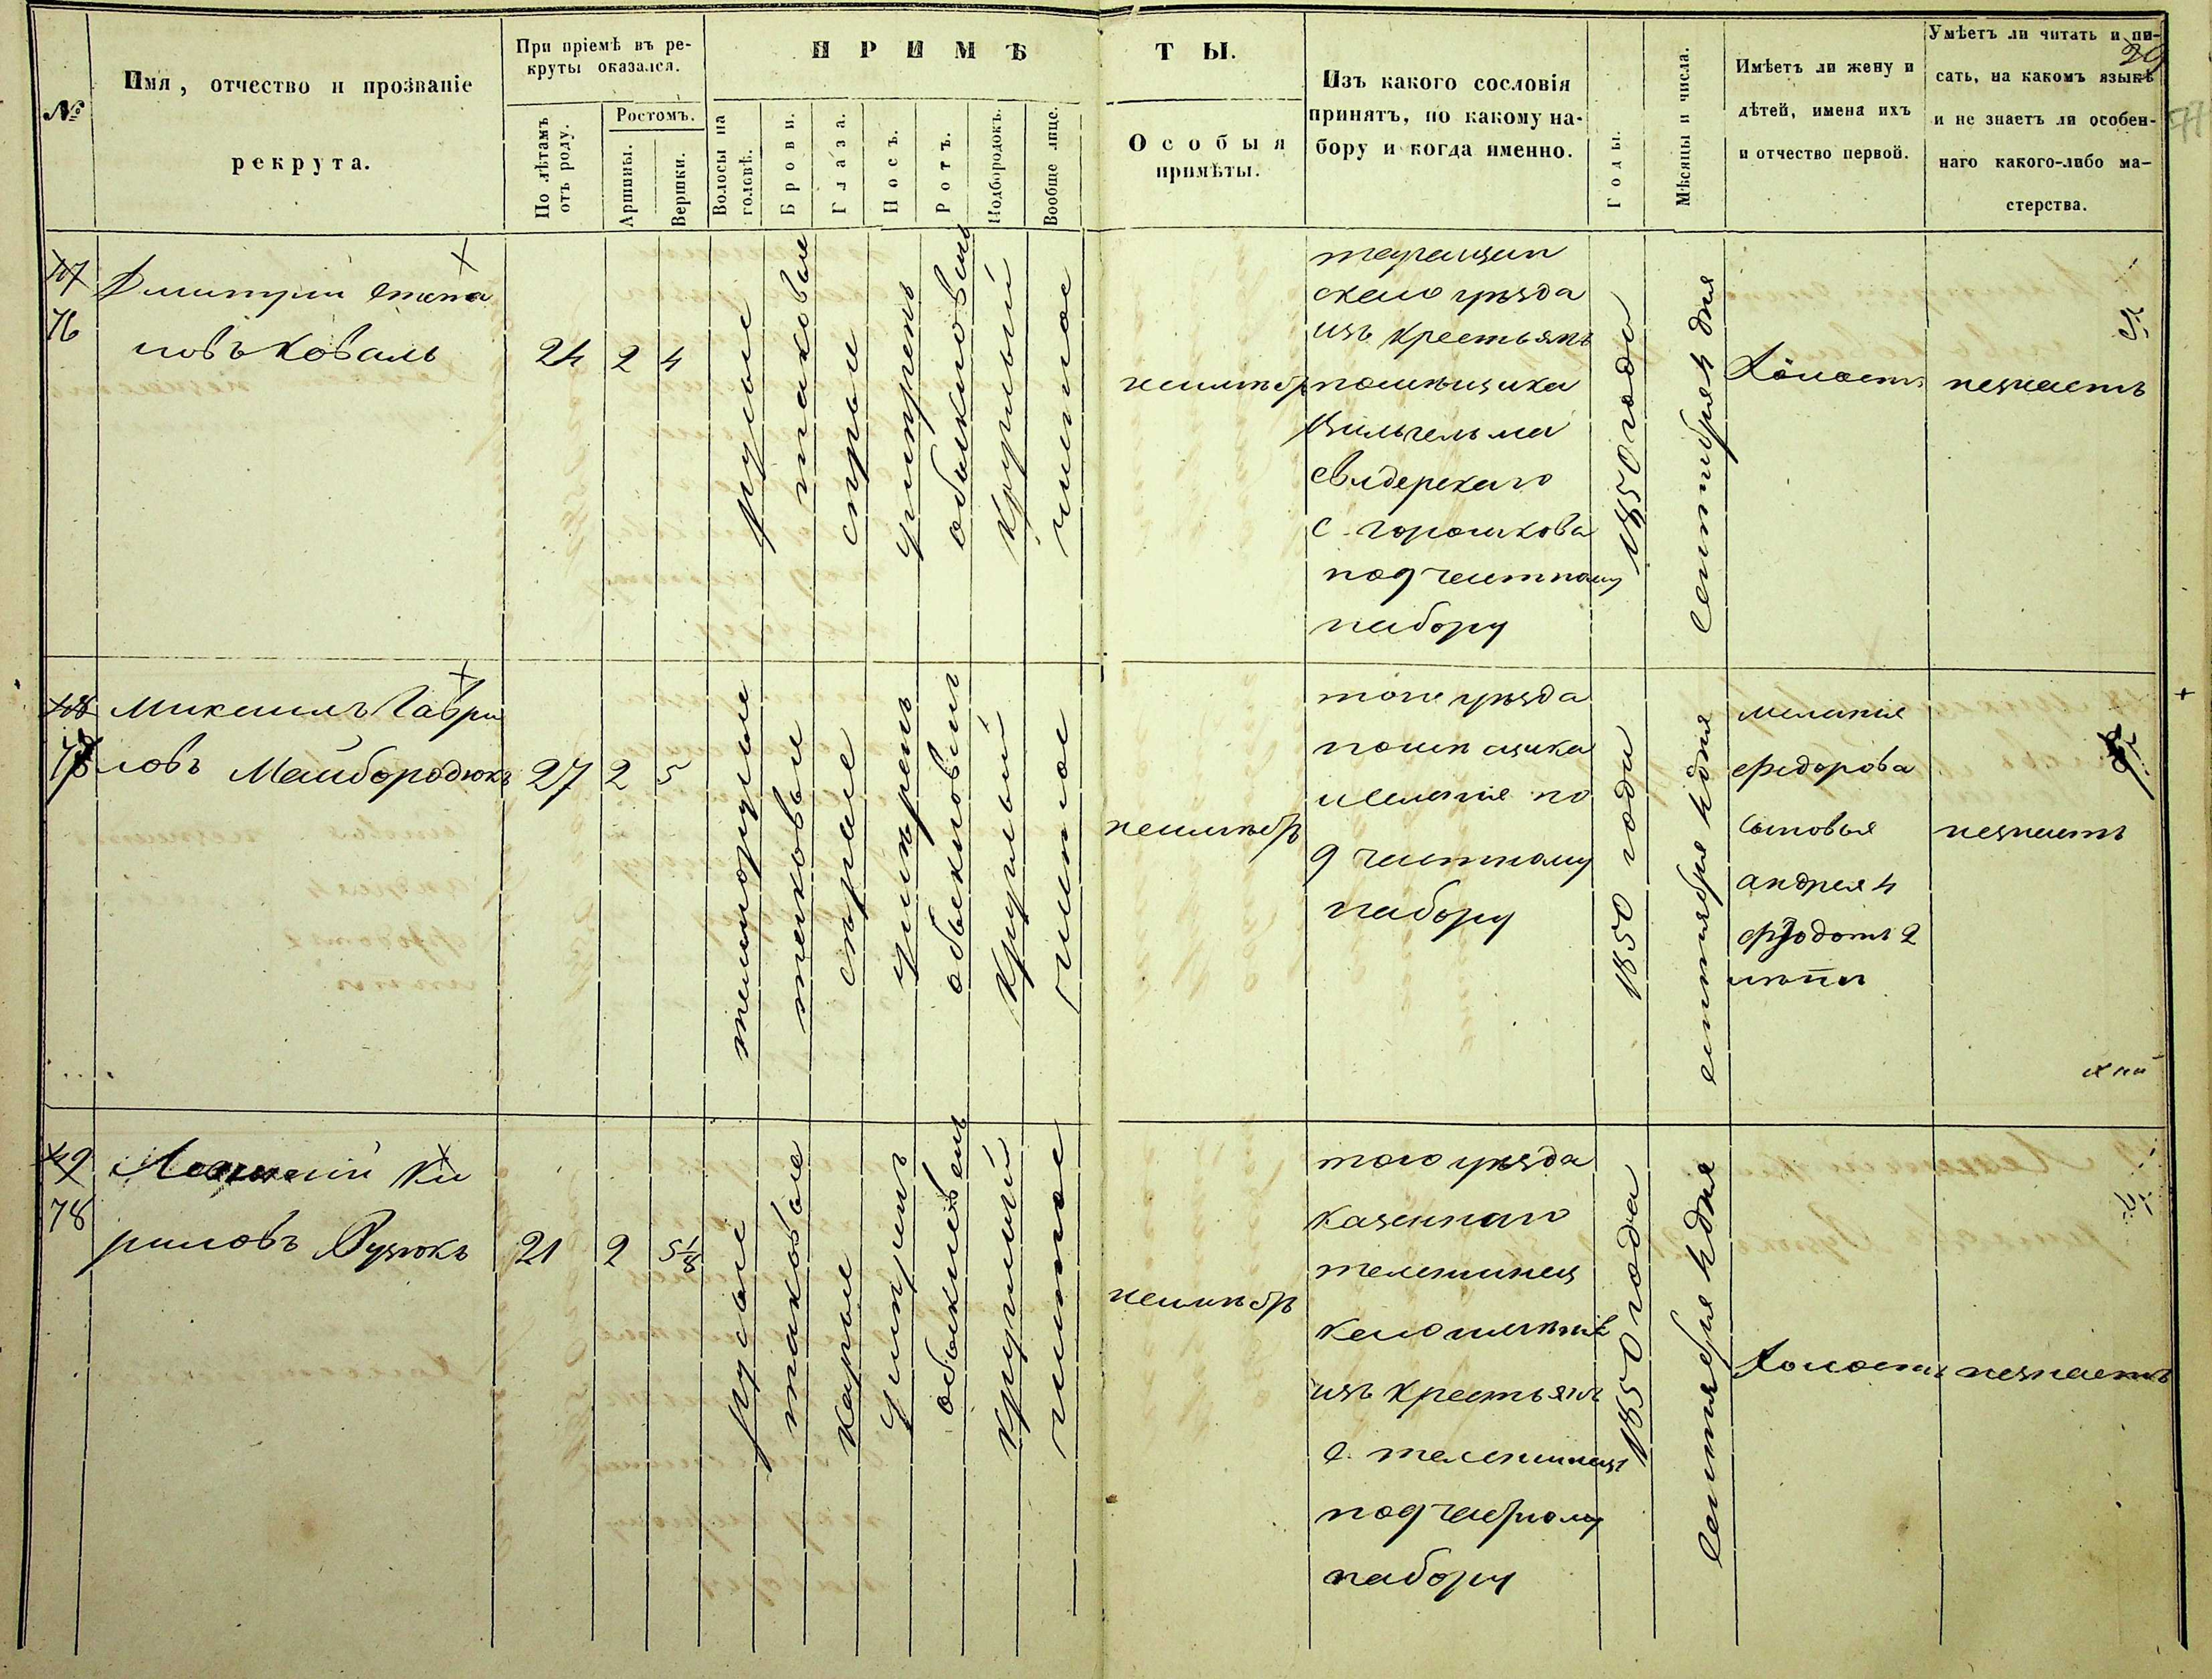 №
Имя, отчество и прозваніе
рекрута.
При пріемѣ въ ре-
круты оказался.
По лѣтамъ
отъ роду.
Ростомъ.
Аршины.
Вершки.
ПРИМѢ
Волосы на
головѣ.
Брови.
Глаза.
Носъ.
Ротъ.
Подбородокъ.
Вообще лице.
ТЫ.
Особыя
примѣты.
Изъ какого сословія
принятъ, по какому на-
бору и когда именно.
Годы.
Мѣсяцы и числа.
Имѣетъ ли жену и
дѣтей, имена ихъ
и отчество первой.
Умѣетъ ли читать и пи-
сать, на какомъ языкѣ
и не знаетъ ли особен-
наго какого-либо ма-
стерства.
47
76
Дмитрій Степа
новъ Коваль
24
2
4
русые
таковые
сѣрые
умѣренъ
обыкновенъ
круглый
чистое
неимѣетъ
скаго уѣзда
изъ крестьянъ
помѣщика
Вильгельма
Свидерскаго
с. Горошкова
по 9 частному
набору
1850 года
Сентября 4 дня
Холостъ
незнаетъ
48
Михаилъ Гаври
ловъ Майбородюкъ
27
2
5
темнорусые
таковые
сѣрые
умѣренъ
обыкновенъ
круглый
чистое
неимѣетъ
того уѣзда
помѣщика
имѣнія по
9 частному
набору
1850 года
сентября 4 дня
Меланія
Федорова
сыновья
Андрея 4
Федотъ 2
лѣтъ
незнаетъ
49
78
Ки
риловъ Вузюкъ
21
2
5 1/8
русые
таковые
карые
умѣренъ
обыкновенъ
круглый
чистое
неимѣетъ
того уѣзда
казеннаго
имѣнія
изъ крестьянъ
с.
по 9 частному
набору
1850 года
Сентября 4 дня
Холостъ
незнаетъ